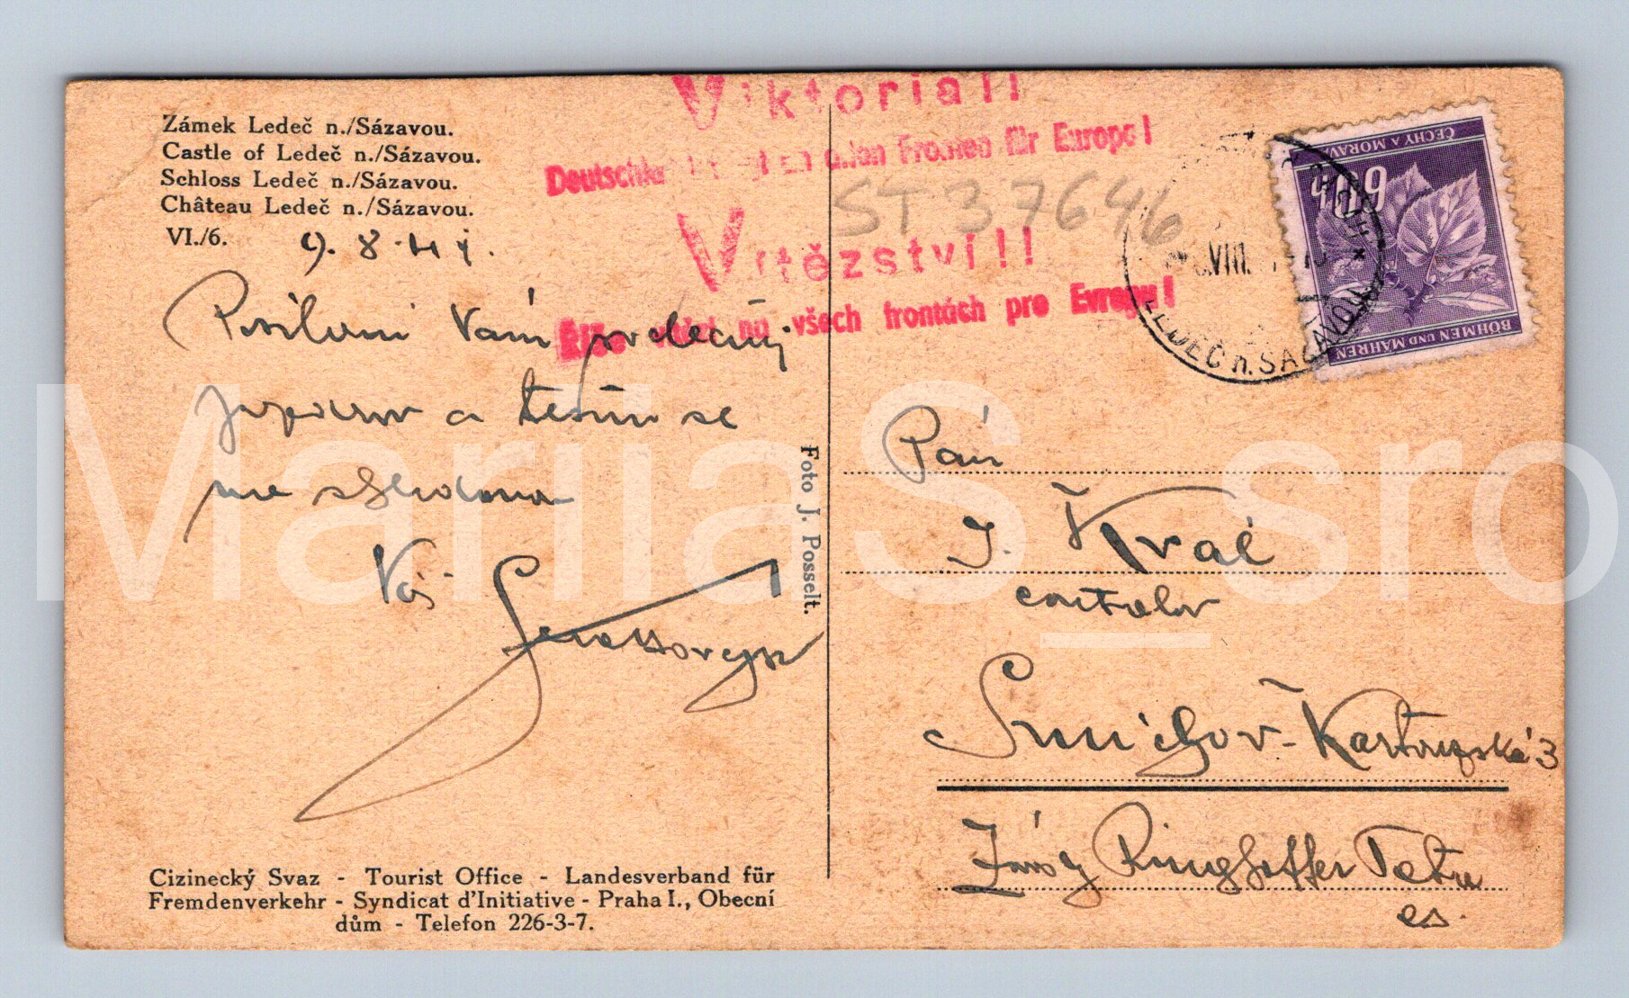 Zámek Ledeč n./Sázavou.
Castle of Ledeč n./Sázavou.
Schloss Ledeč n./Sázavou.
Château Ledeč n./Sázavou.
VI./6.
9. 8. 41.
Vám srdečný
a těším se
na shledanou
Váš
Viktoria!!
an allen Fronten für Europa!
ST 37646
Vítězství!!
na všech frontách pro Evropu!
ČECHY A MORAVA
60h
BÖHMEN UND MÄHREN
VIII.
LEDEČ n. SÁZAVOU
Foto J. Posselt.
Pán
J. Král
Smíchov-Kartouzská 3
Závody Ringhoffer Tatra
as.
Cizinecký Svaz - Tourist Office - Landesverband für
Fremdenverkehr - Syndicat d'Initiative - Praha I., Obecní
dům - Telefon 226-3-7.
MariiaS_sro